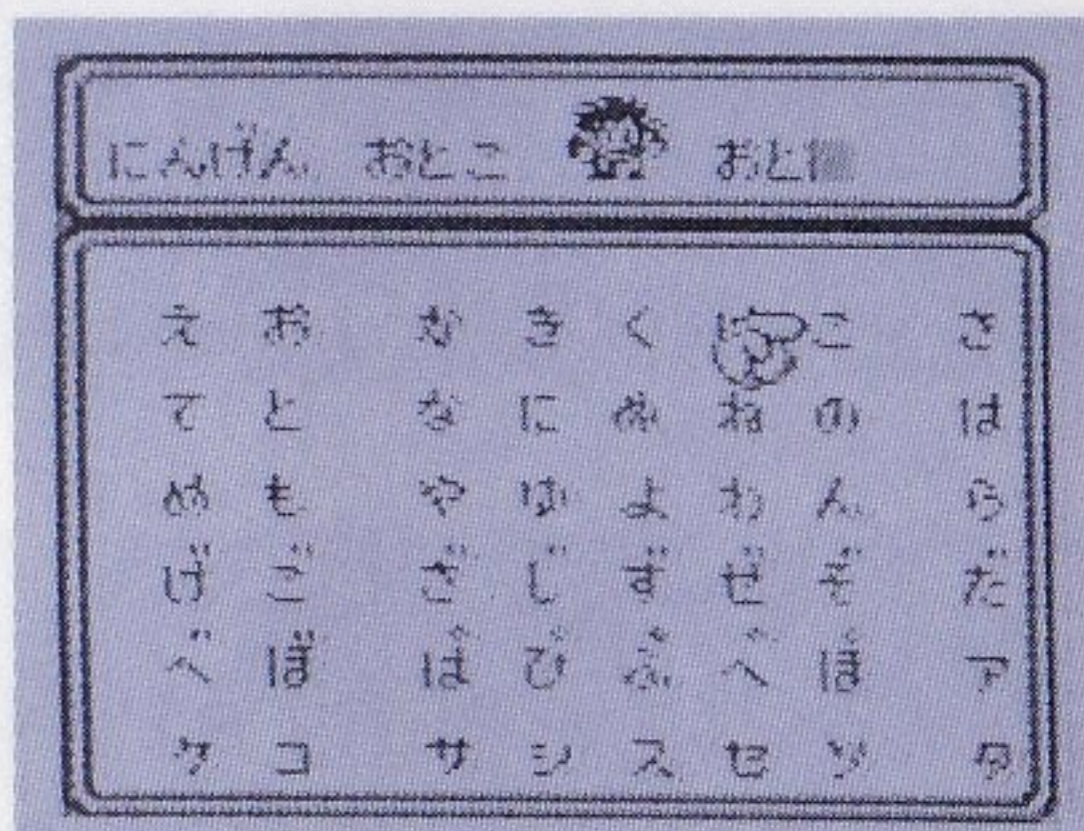 にんげん おとこ おと
え お か き く け こ さ
て と な に ぬ ね の は
め も や ゆ よ わ ん ら
げ ご ざ じ ず ぜ ぞ だ
べ ぼ ぱ ぴ ぷ ぺ ぽ ア
ケ コ サ シ ス セ ソ タ